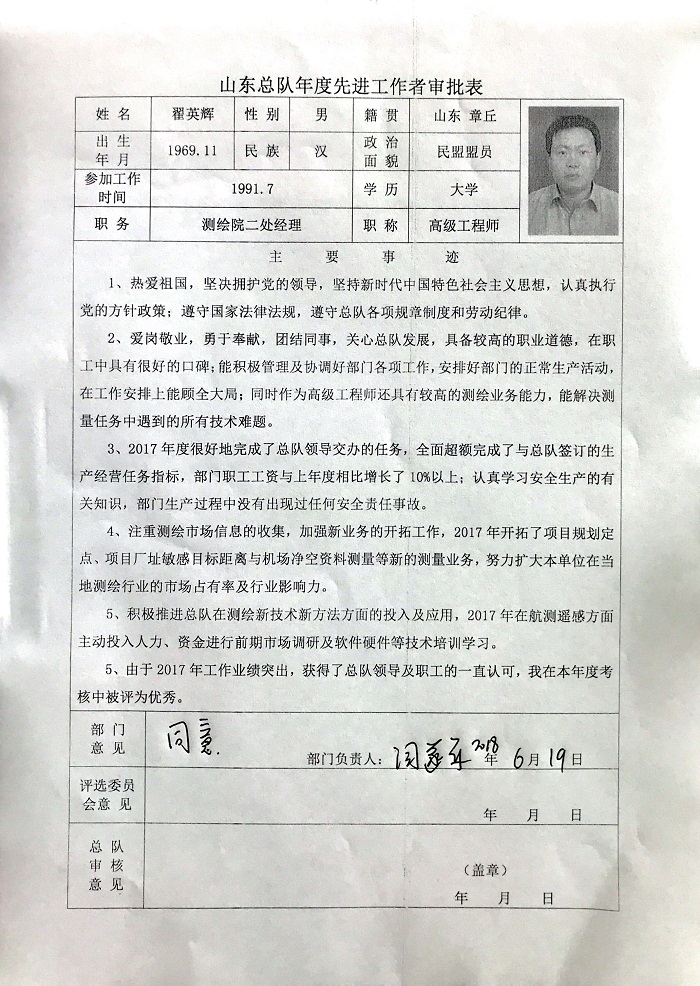 山东总队年度先进工作者审批表
姓 名 翟英辉 性 别 男 籍 贯 山东 章丘
出 生 年 月 1969.11 民 族 汉 政 治 面 貌 民盟盟员
参加工作时间 1991.7 学 历 大学
职 务 测绘院二处经理 职 称 高级工程师
主 要 事 迹
1、热爱祖国，坚决拥护党的领导，坚持新时代中国特色社会主义思想，认真执行
党的方针政策；遵守国家法律法规，遵守总队各项规章制度和劳动纪律。
2、爱岗敬业，勇于奉献，团结同事，关心总队发展，具备较高的职业道德，在职
工中具有很好的口碑；能积极管理及协调好部门各项工作，安排好部门的正常生产活动，
在工作安排上能顾全大局；同时作为高级工程师还具有较高的测绘业务能力，能解决测
量任务中遇到的所有技术难题。
3、2017年度很好地完成了总队领导交办的任务，全面超额完成了与总队签订的生
产经营任务指标，部门职工工资与上年度相比增长了10%以上；认真学习安全生产的有
关知识，部门生产过程中没有出现过任何安全责任事故。
4、注重测绘市场信息的收集，加强新业务的开拓工作，2017年开拓了项目规划定
点、项目厂址敏感目标距离与机场净空资料测量等新的测量业务，努力扩大本单位在当
地测绘行业的市场占有率及行业影响力。
5、积极推进总队在测绘新技术新方法方面的投入及应用，2017年在航测遥感方面
主动投入人力、资金进行前期市场调研及软件硬件等技术培训学习。
5、由于2017年工作业绩突出，获得了总队领导及职工的一直认可，我在本年度考
核中被评为优秀。
部 门 意 见 同意
部门负责人： 2018年 6月19日
评选委员会意见
年 月 日
总 队 审 核 意 见
（盖章）
年 月 日